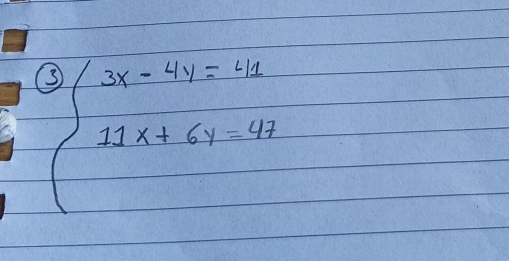 ③ 3x - 4y = 41
11x + 6y = 47